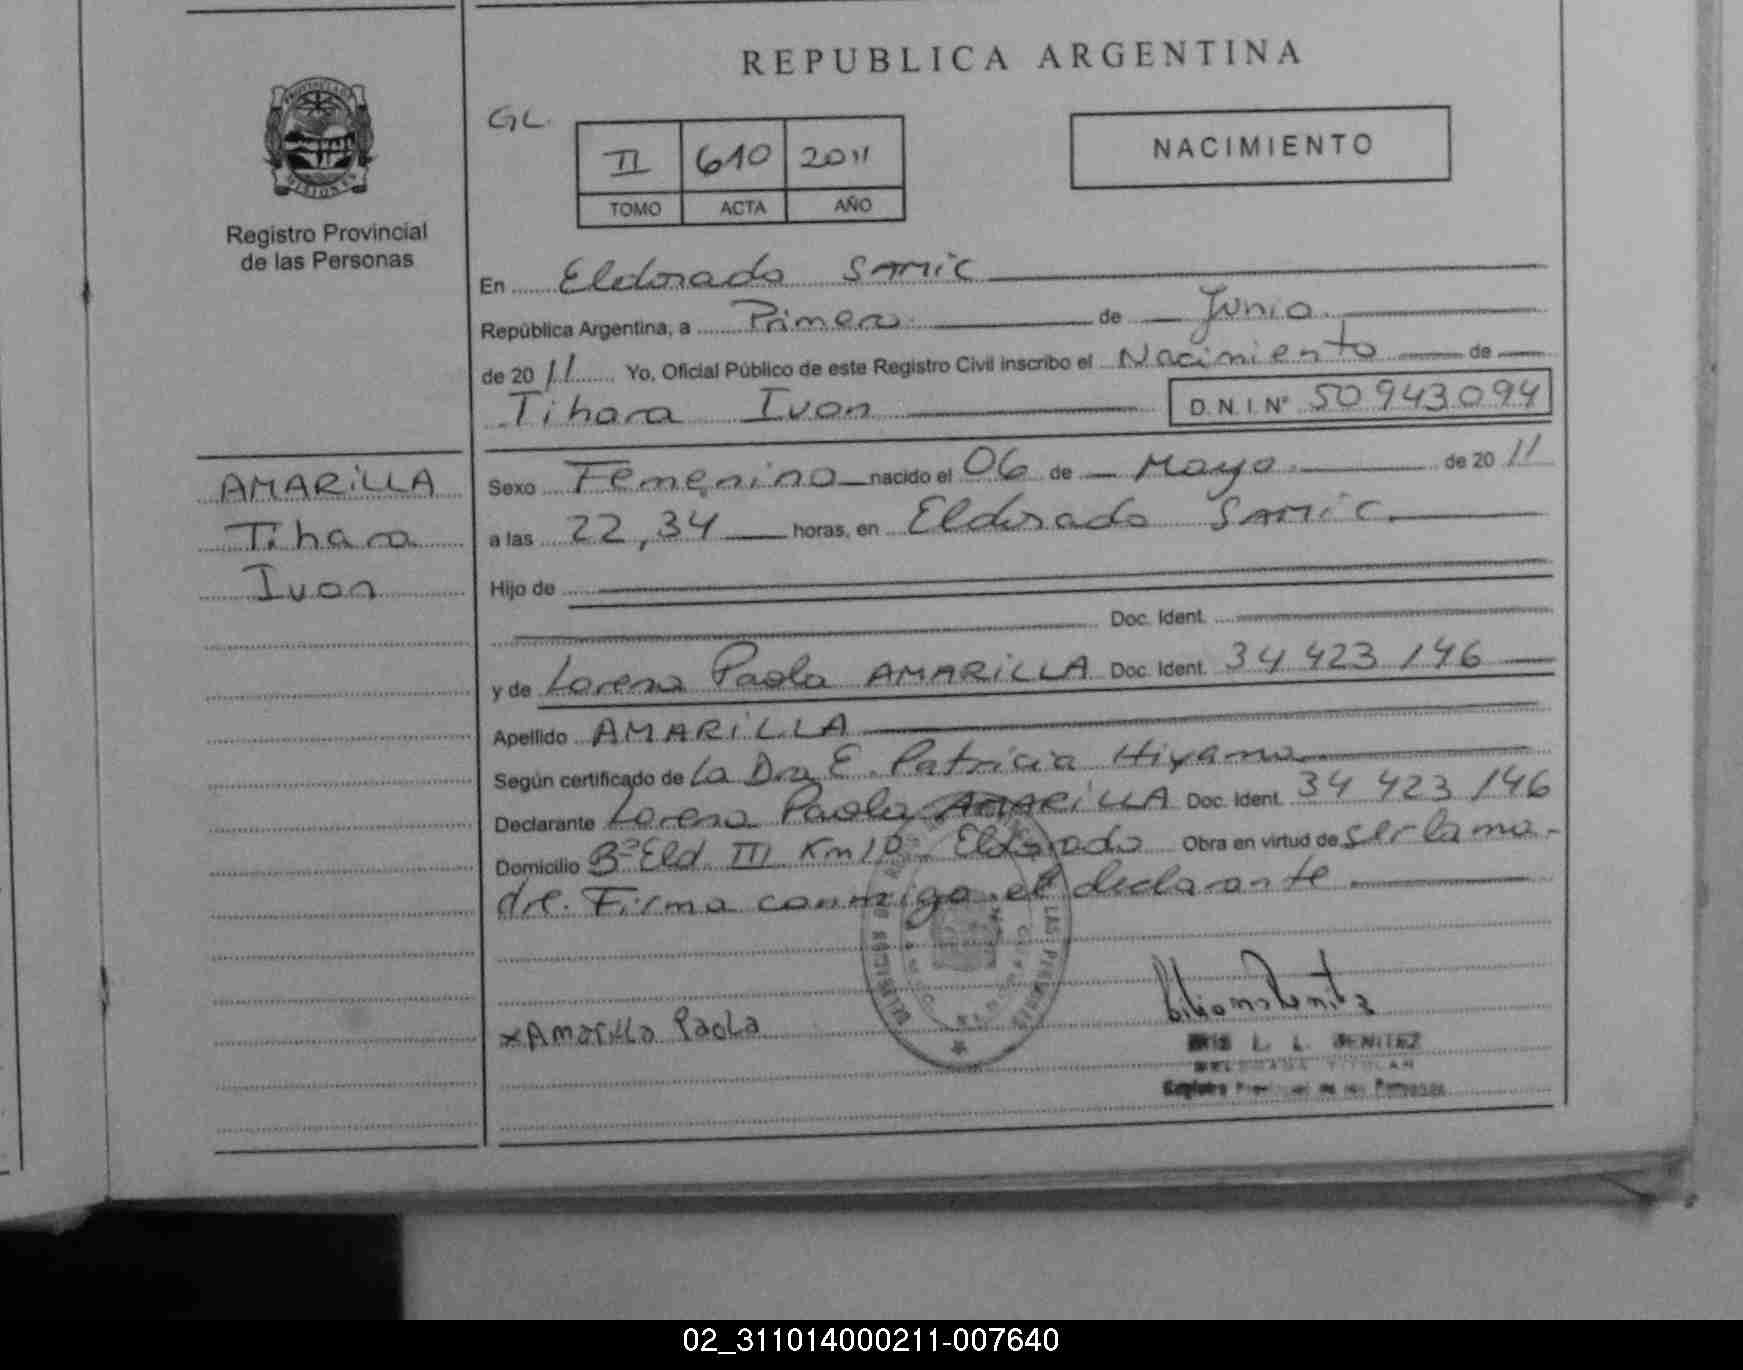 REPUBLICA ARGENTINA
PROVINCIA DE
MISIONES
Registro Provincial
de las Personas
GL.
II 610 2011
TOMO ACTA AÑO
NACIMIENTO
En Eldorado SAMIC
República Argentina, a Primero de Junio
de 2011 Yo, Oficial Público de este Registro Civil inscribo el Nacimiento de
Tihara Ivon D.N.I.Nº 50943094
AMARILLA
Tihara
Ivon
Sexo Femenino nacido el 06 de Mayo de 2011
a las 22,34 horas, en Eldorado SAMIC
Hijo de
Doc. Ident.
y de Lorena Paola AMARILLA Doc. Ident. 34 423 146
Apellido AMARILLA
Según certificado de La Dra E. Patricia Hiyama
Declarante Lorena Paola AMARILLA Doc. Ident. 34 423 146
Domicilio Bº Eld III Km 10 Eldorado Obra en virtud de ser la ma-
dre. Firma conmigo el declarante
LAS PERSONAS
x Amarilla Paola
L. L. BENITEZ
DELEGADA TITULAR
Registro Provincial de las Personas
02_311014000211-007640